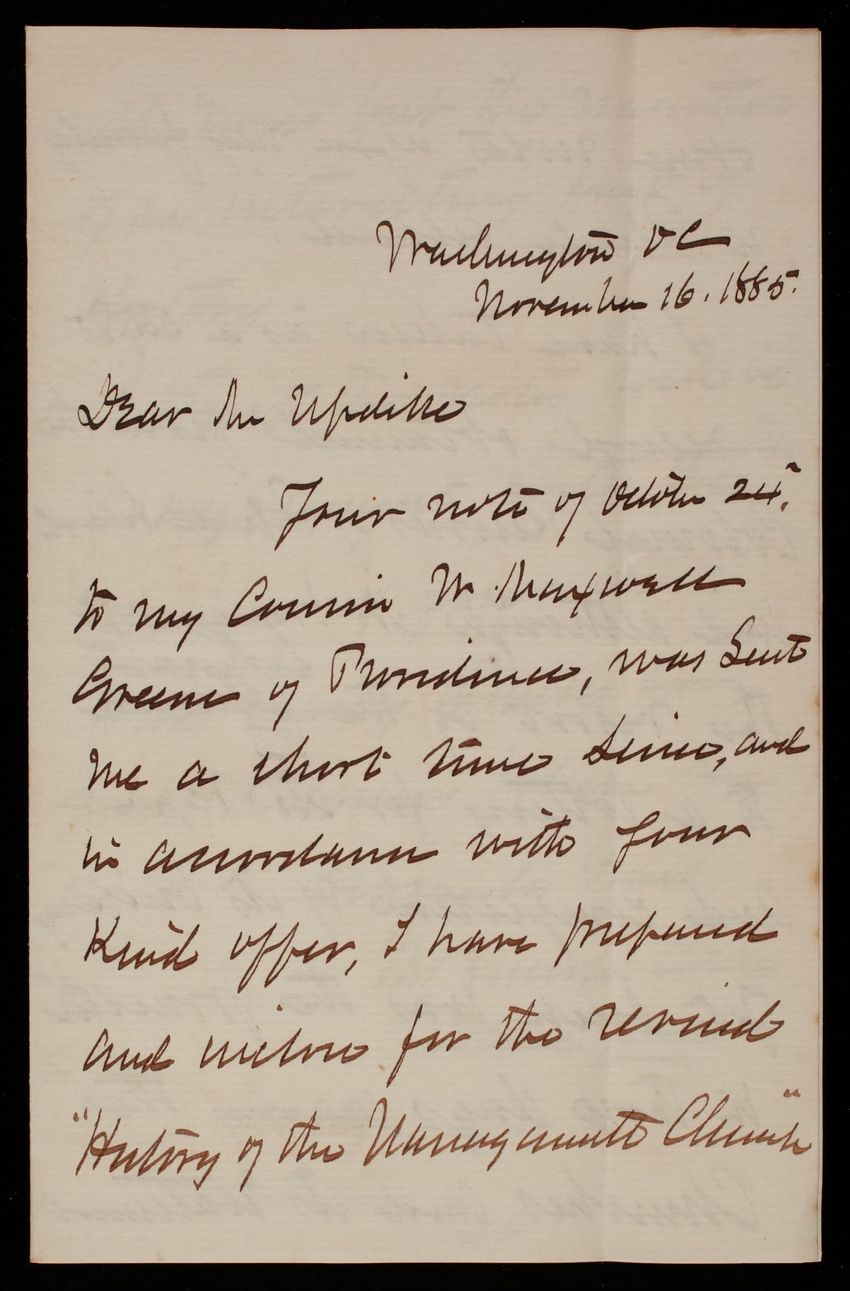 Washington DC
November 16. 1885.
Dear Mr Updike
Your note of October 24th.
to my Cousin W. Maxwell
Greene of Providence, was sent
me a short time since, and
in accordance with your
kind offer, I have prepared
and inclose for the revised
"History of the Narragansett Church"